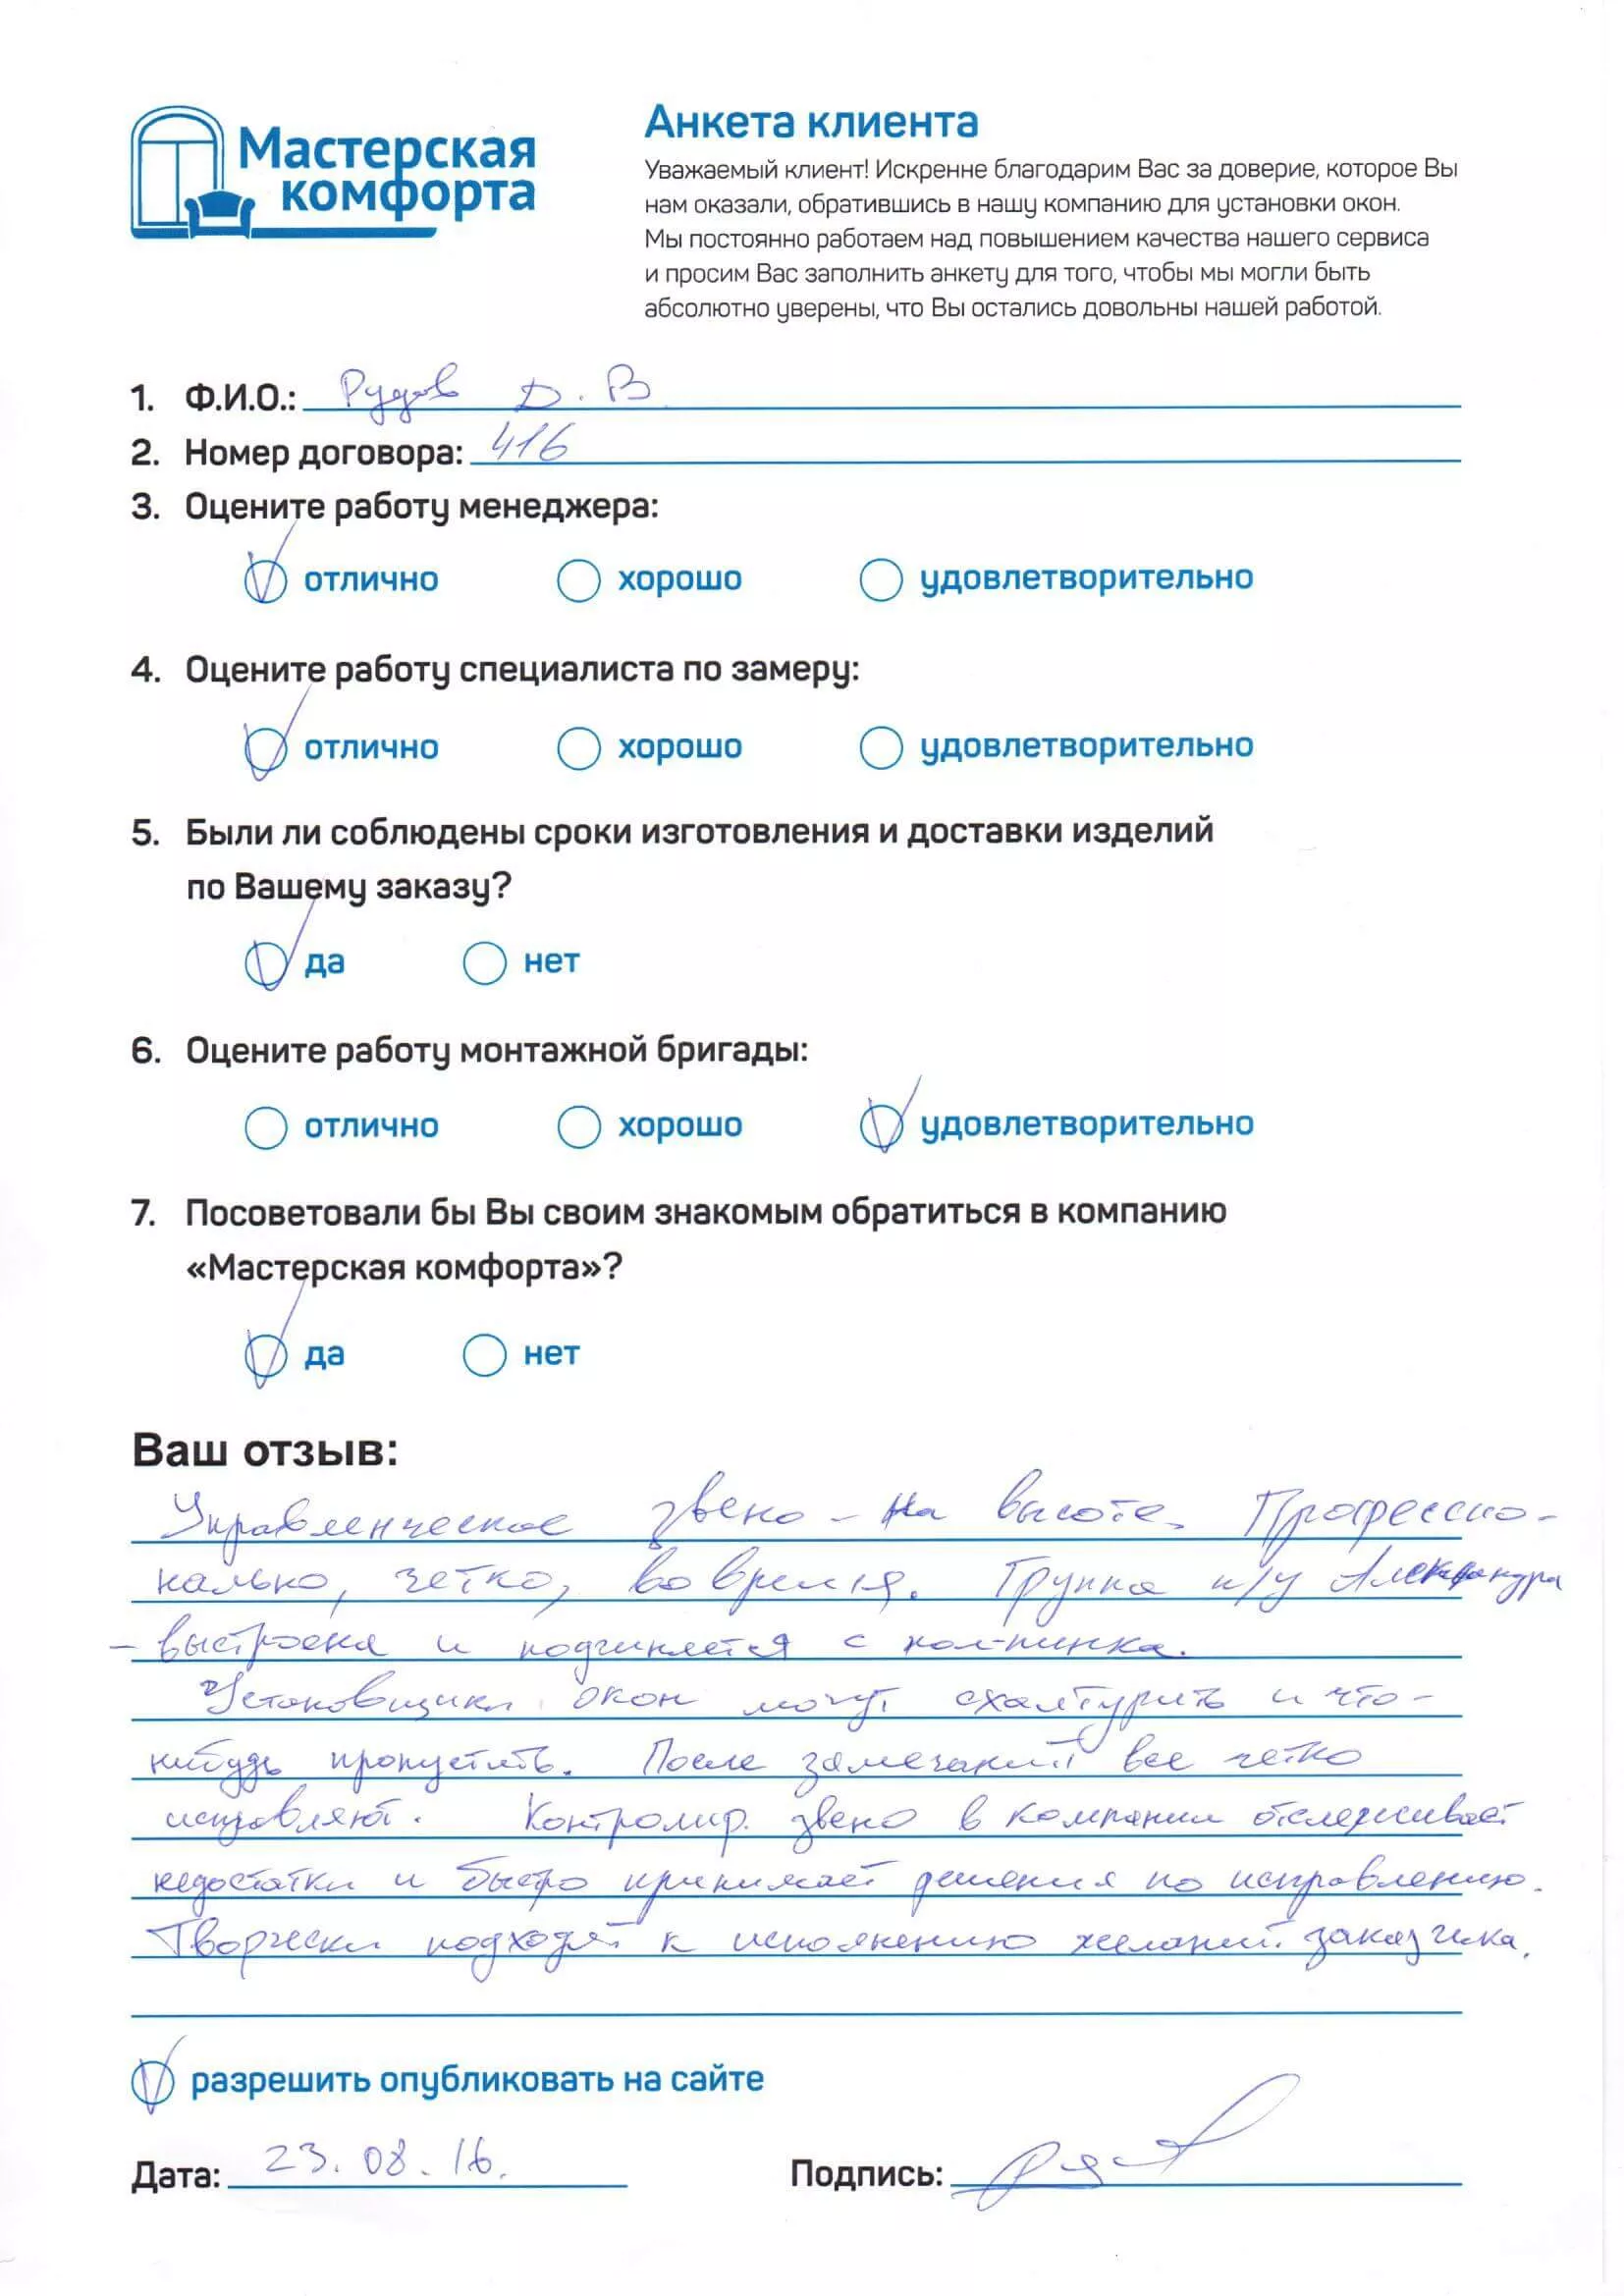 Мастерская
комфорта
Анкета клиента
Уважаемый клиент! Искренне благодарим Вас за доверие, которое Вы
нам оказали, обратившись в нашу компанию для установки окон.
Мы постоянно работаем над повышением качества нашего сервиса
и просим Вас заполнить анкету для того, чтобы мы могли быть
абсолютно уверены, что Вы остались довольны нашей работой.
1. Ф.И.О.: Рудов Д. В
2. Номер договора: 416
3. Оцените работу менеджера:
отлично хорошо удовлетворительно
4. Оцените работу специалиста по замеру:
отлично хорошо удовлетворительно
5. Были ли соблюдены сроки изготовления и доставки изделий
по Вашему заказу?
да нет
6. Оцените работу монтажной бригады:
отлично хорошо удовлетворительно
7. Посоветовали бы Вы своим знакомым обратиться в компанию
«Мастерская комфорта»?
да нет
Ваш отзыв:
Управленческое звено - на высоте. Профессио-
нально, четко, во время. Группа п/у Александра
- выстроена и подчиняется с пол-пинка.
Установщики окон могут схалтурить и что-
нибудь пропустить. После замечаний все четко
исправляют. Контролир. звено в компании отслеживает
недостатки и быстро принимает решения по исправлению.
Творчески подходят к исполнению желаний заказчика.
разрешить опубликовать на сайте
Дата: 23.08.16. Подпись: